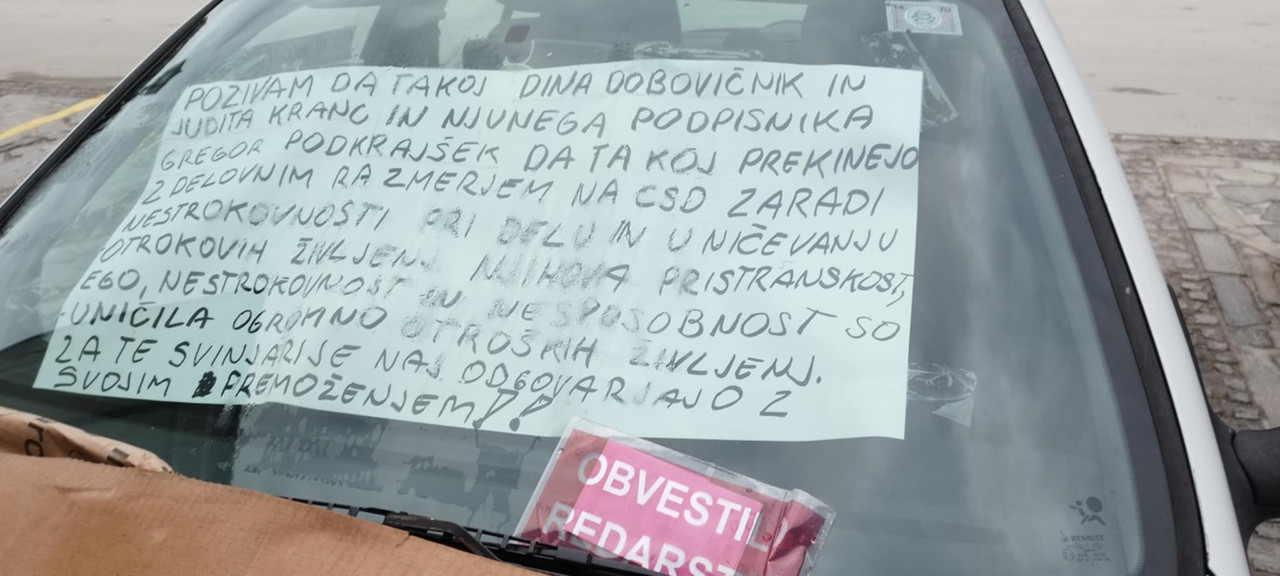 POZIVAM DA TAKOJ DINA DOBOVIČNIK IN
JUDITA KRANC IN NJUNEGA PODPISNIKA
GREGOR PODKRAJŠEK DA TAKOJ PREKINEJO
Z DELOVNIM RAZMERJEM NA CSD ZARADI
NESTROKOVNOSTI PRI DELU IN UNIČEVANJU
OTROKOVIH ŽIVLJENJ NJIHOVA PRISTRANSKOST,
EGO, NESTROKOVNOST IN NESPOSOBNOST SO
UNIČILA OGROMNO OTROŠKIH ŽIVLJENJ.
ZA TE SVINJARIJE NAJ ODGOVARJAJO Z
SVOJIM PREMOŽENJEM!!
OBVESTIL
REDARST
RENAULT